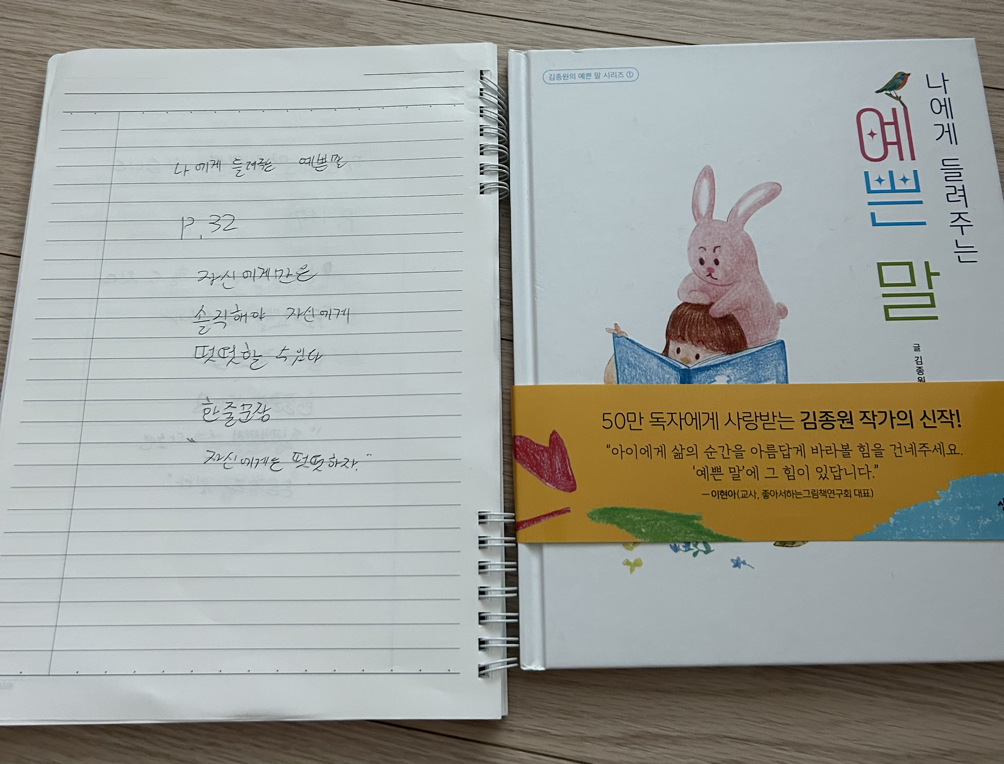 나에게 들려주는 예쁜말
p.32
자신에게만은
솔직해야 자신에게
떳떳할 수 있다
한줄문장
"자신에게는 떳떳하자."
김종원의 예쁜 말 시리즈 ①
나에게 들려주는
예쁜 말
글 김종원
50만 독자에게 사랑받는 김종원 작가의 신작!
"아이에게 삶의 순간을 아름답게 바라볼 힘을 건네주세요.
'예쁜 말'에 그 힘이 있답니다."
— 이현아(교사, 좋아서하는그림책연구회 대표)